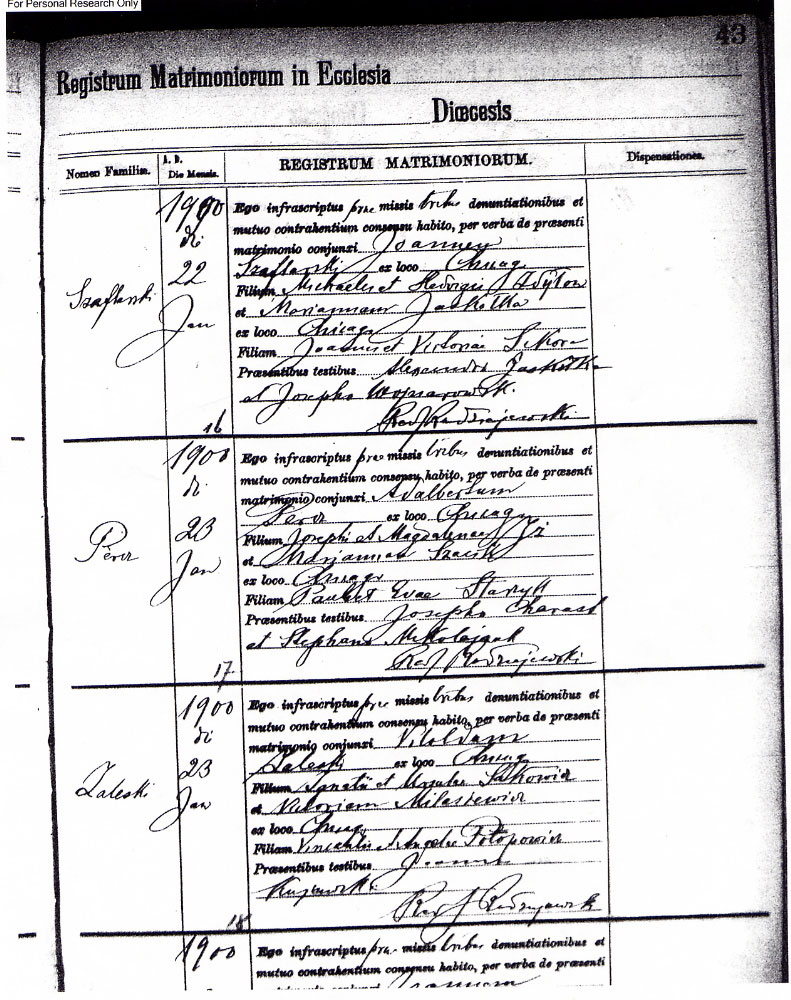 For Personal Research Only
43
Registrum Matrimoniorum in Ecclesia
Diœcesis
Nomen Familiæ.
A. D.
Die Mensis.
REGISTRUM MATRIMONIORUM.
Dispensationes.
Szaflarski
1900
di
22
Jan
16
Ego infrascriptus præ missis tribus denuntiationibus et
mutuo contrahentium consensu habito, per verba de præsenti
matrimonio conjunxi Joannem
Szaflarski ex loco Chicag
Filium Michaelis et Hedvigis
et Mariannam Jaskolka
ex loco Chicago
Filiam Joannis et Victoriæ Sikora
Præsentibus testibus Alexandro Jaskolka
et Josepho
Rev J Radziejewski
1900
di
23
Jan
17
Ego infrascriptus præ missis tribus denuntiationibus et
mutuo contrahentium consensu habito, per verba de præsenti
matrimonio conjunxi Adalbertum
ex loco Chicago
Filium Josephi et Magdalenae
et Mariannam
ex loco Chicago
Filiam Pauli et Evae
Præsentibus testibus Josepho
et Stephano Mikolajzak
Rev J Radziejewski
Zaleski
1900
di
23
Jan
18
Ego infrascriptus præ missis tribus denuntiationibus et
mutuo contrahentium consensu habito, per verba de præsenti
matrimonio conjunxi Vitoldum
Zaleski ex loco Chicag
Filium Ignatii et Ursulae
et Victoriam Milaszewicz
ex loco Chicag
Filiam Vincentii et Angelae Potopowicz
Præsentibus testibus Joanne
Kujawski
Rev J Radziejewski
1900
Ego infrascriptus præ missis tribus denuntiationibus et
mutuo contrahentium consensu habito, per verba de præsenti
matrimonio conjunxi Joannem